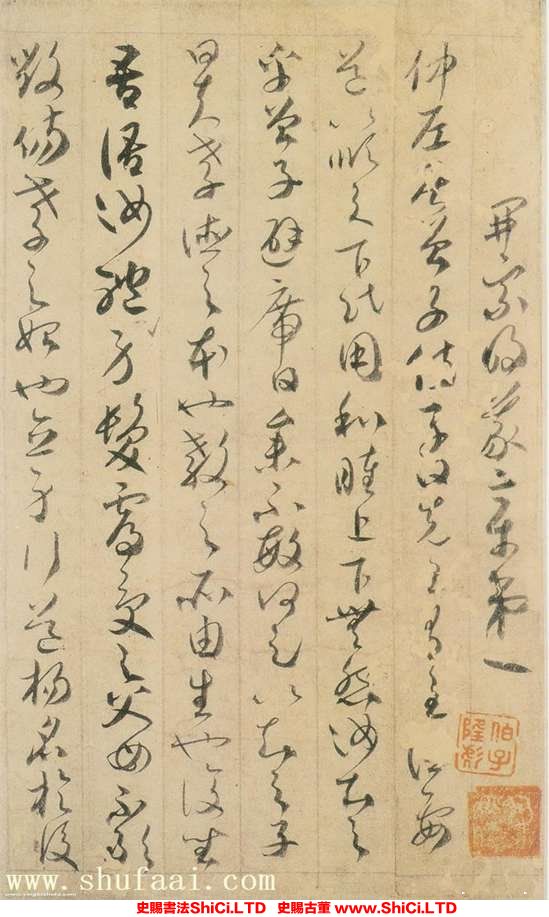 開宗明義章第一
仲尼居曾子侍子曰先王有至德要
道以順天下民用和睦上下無怨汝知之
乎曾子避席曰參不敏何足以知之子
曰夫孝德之本也教之所由生也復坐
吾語汝體身髮膚受之父母不敢
毀傷孝之始也立身行道揚名於後
www.shufaai.com
史賜書法ShiCi.LTD 史賜古董 www.ShiCi.LTD